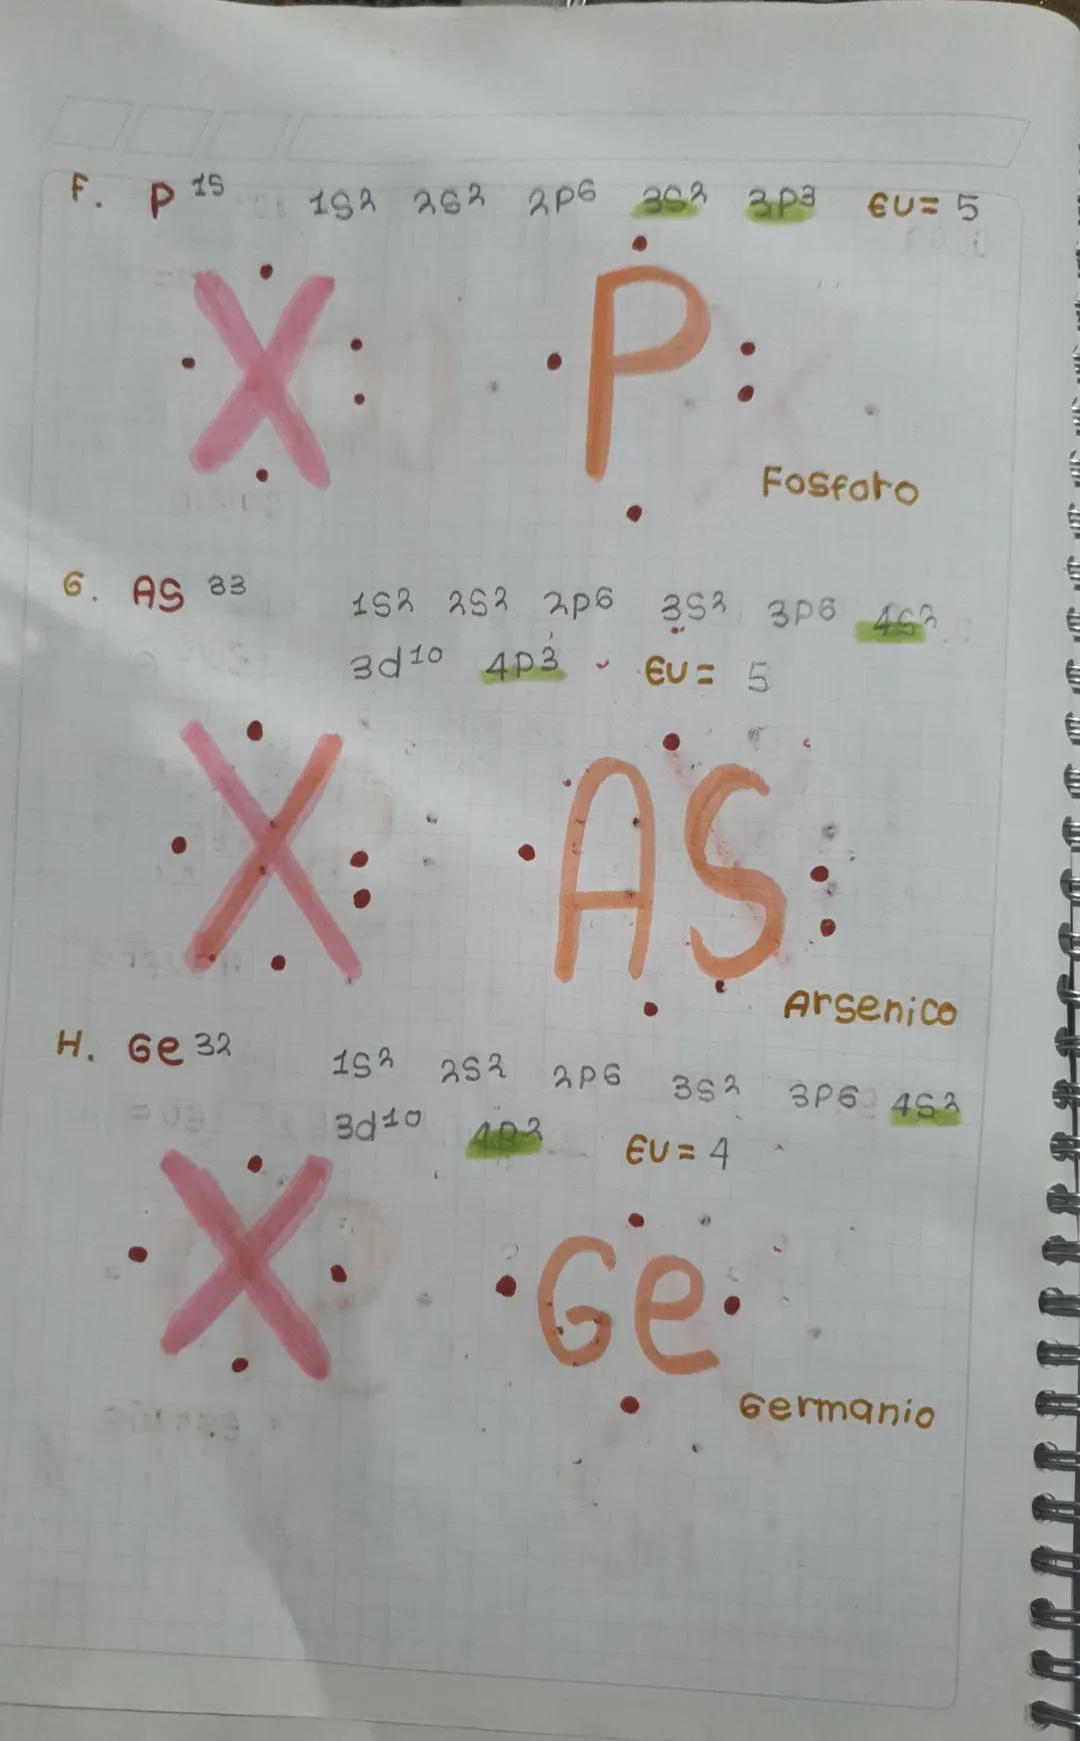 F. P 15 1s2 2s2 2p6 3s2 3p3 EV= 5
X P
Fosforo
G. AS 33 1s2 2s2 2p6 3s2 3p6 4s2
3d10 4p3 EV= 5
X AS
Arsenico
H. Ge 32 1s2 2s2 2p6 3s2 3p6 4s2
3d10 4p2 EV= 4
X Ge
Germanio